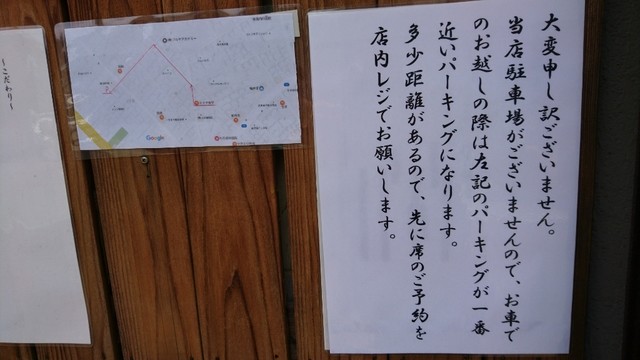 大変申し訳ございません。
当店駐車場がございませんので、お車で
のお越しの際は左記のパーキングが一番
近いパーキングになります。
多少距離があるので、先に席のご予約を
店内レジでお願いします。
Google
～こだわり～